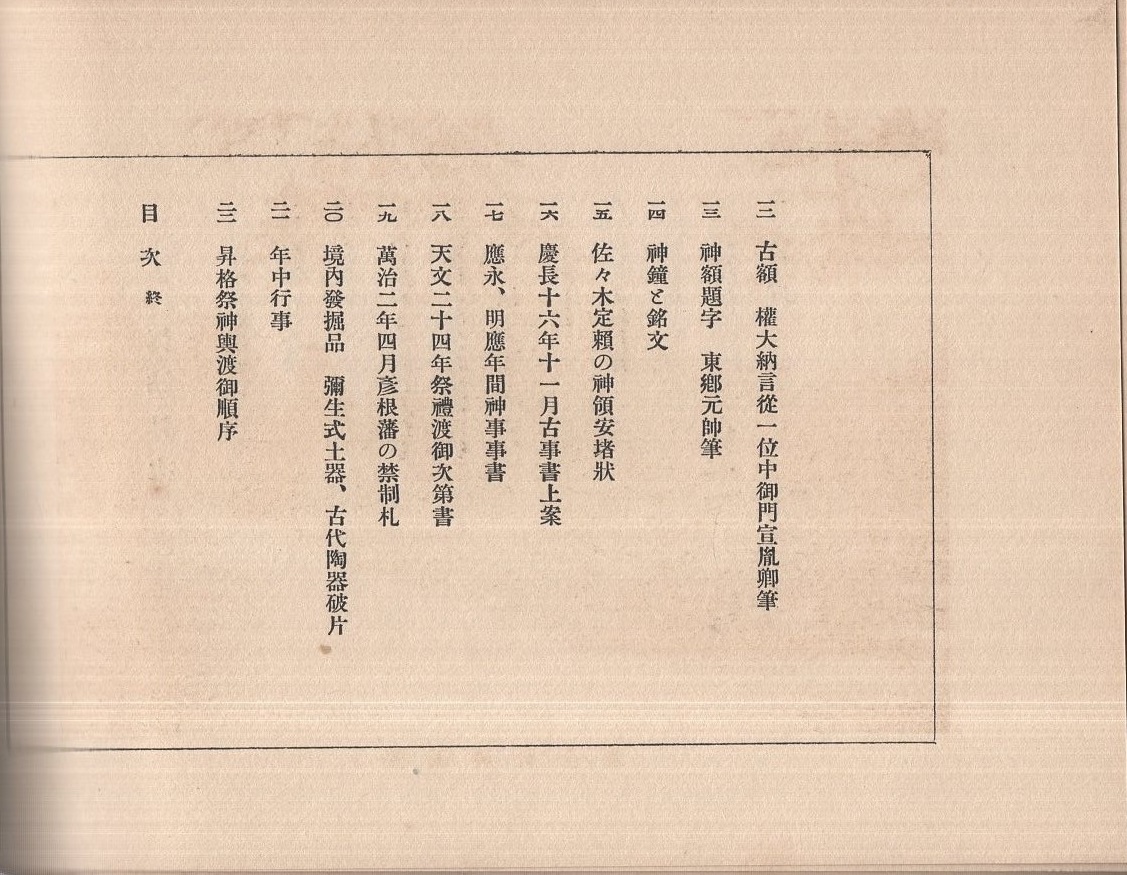 一二 古額 權大納言從一位中御門宣胤卿筆
一三 神額題字 東鄕元帥筆
一四 神鐘と銘文
一五 佐々木定賴の神領安堵狀
一六 慶長十六年十一月古事書上案
一七 應永、明應年間神事事書
一八 天文二十四年祭禮渡御次第書
一九 萬治二年四月彥根藩の禁制札
二〇 境內發掘品 彌生式土器、古代陶器破片
二一 年中行事
二二 昇格祭神輿渡御順序
目次 終